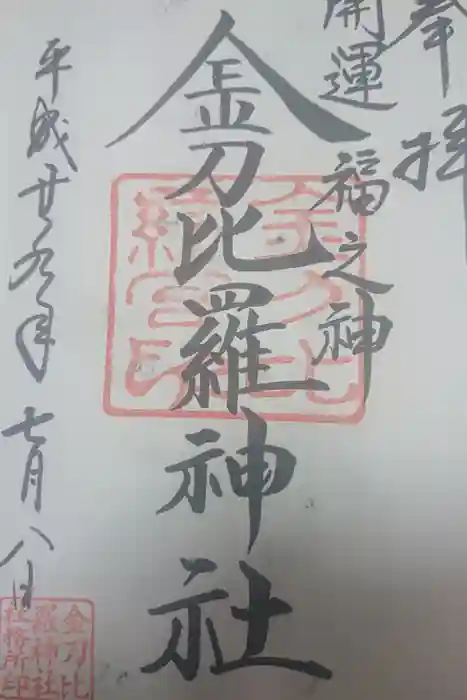 奉拝
開運福之神
金刀比羅神社
平成廿九年七月八日
金刀比
羅神社
社務所印